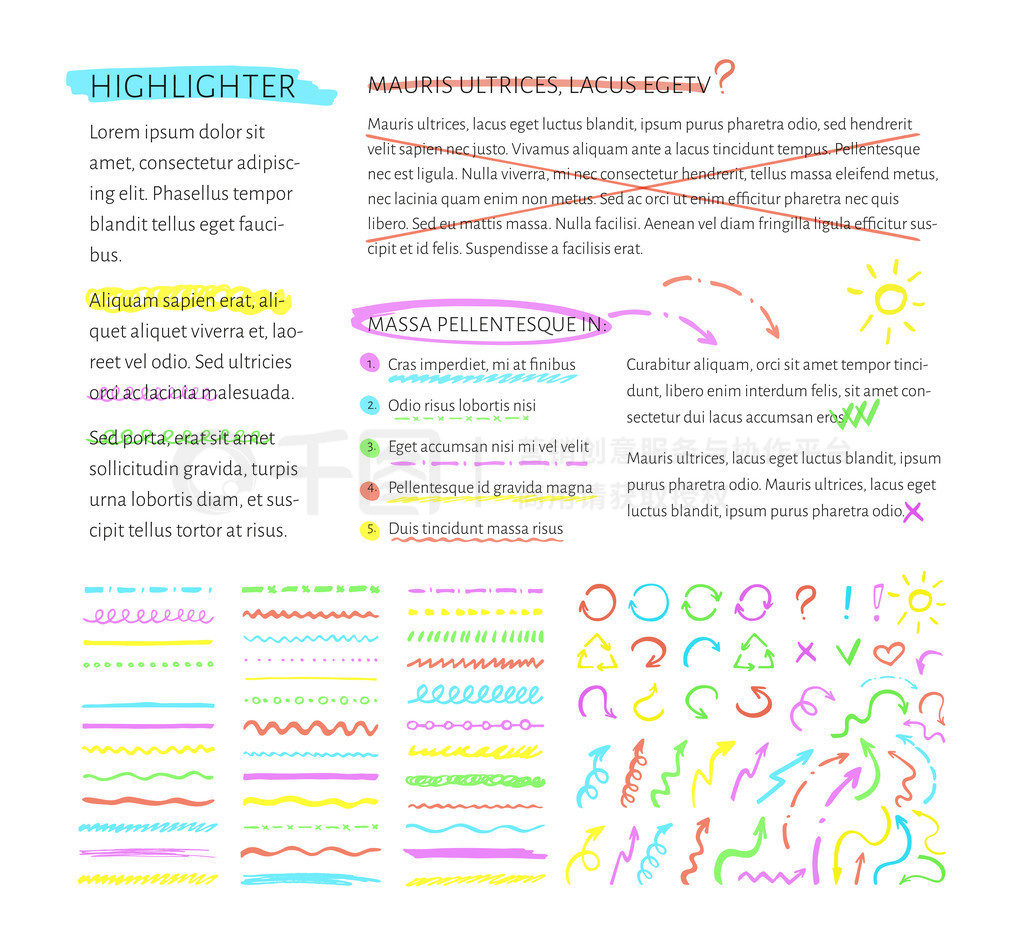 HIGHLIGHTER
Lorem ipsum dolor sit
amet, consectetur adipisc-
ing elit. Phasellus tempor
blandit tellus eget fauci-
bus.
Aliquam sapien erat, ali-
quet aliquet viverra et, lao-
reet vel odio. Sed ultricies
orci ac lacinia malesuada.
Sed porta, erat sit amet
sollicitudin gravida, turpis
urna lobortis diam, et sus-
cipit tellus tortor at risus.
MAURIS ULTRICES, LACUS EGETV?
Mauris ultrices, lacus eget luctus blandit, ipsum purus pharetra odio, sed hendrerit
velit sapien nec justo. Vivamus aliquam ante a lacus tincidunt tempus. Pellentesque
nec est ligula. Nulla viverra, mi nec consectetur hendrerit, tellus massa eleifend metus,
nec lacinia quam enim non metus. Sed ac orci ut enim efficitur pharetra nec quis
libero. Sed eu mattis massa. Nulla facilisi. Aenean vel diam fringilla ligula efficitur sus-
cipit et id felis. Suspendisse a facilisis erat.
MASSA PELLENTESQUE IN:
1. Cras imperdiet, mi at finibus
2. Odio risus lobortis nisi
3. Eget accumsan nisi mi vel velit
4. Pellentesque id gravida magna
5. Duis tincidunt massa risus
Curabitur aliquam, orci sit amet tempor tinci-
dunt, libero enim interdum felis, sit amet con-
sectetur dui lacus accumsan eros.
Mauris ultrices, lacus eget luctus blandit, ipsum
purus pharetra odio. Mauris ultrices, lacus eget
luctus blandit, ipsum purus pharetra odio.
千图
营销创意服务与协作平台
商用请获取授权
? ! !